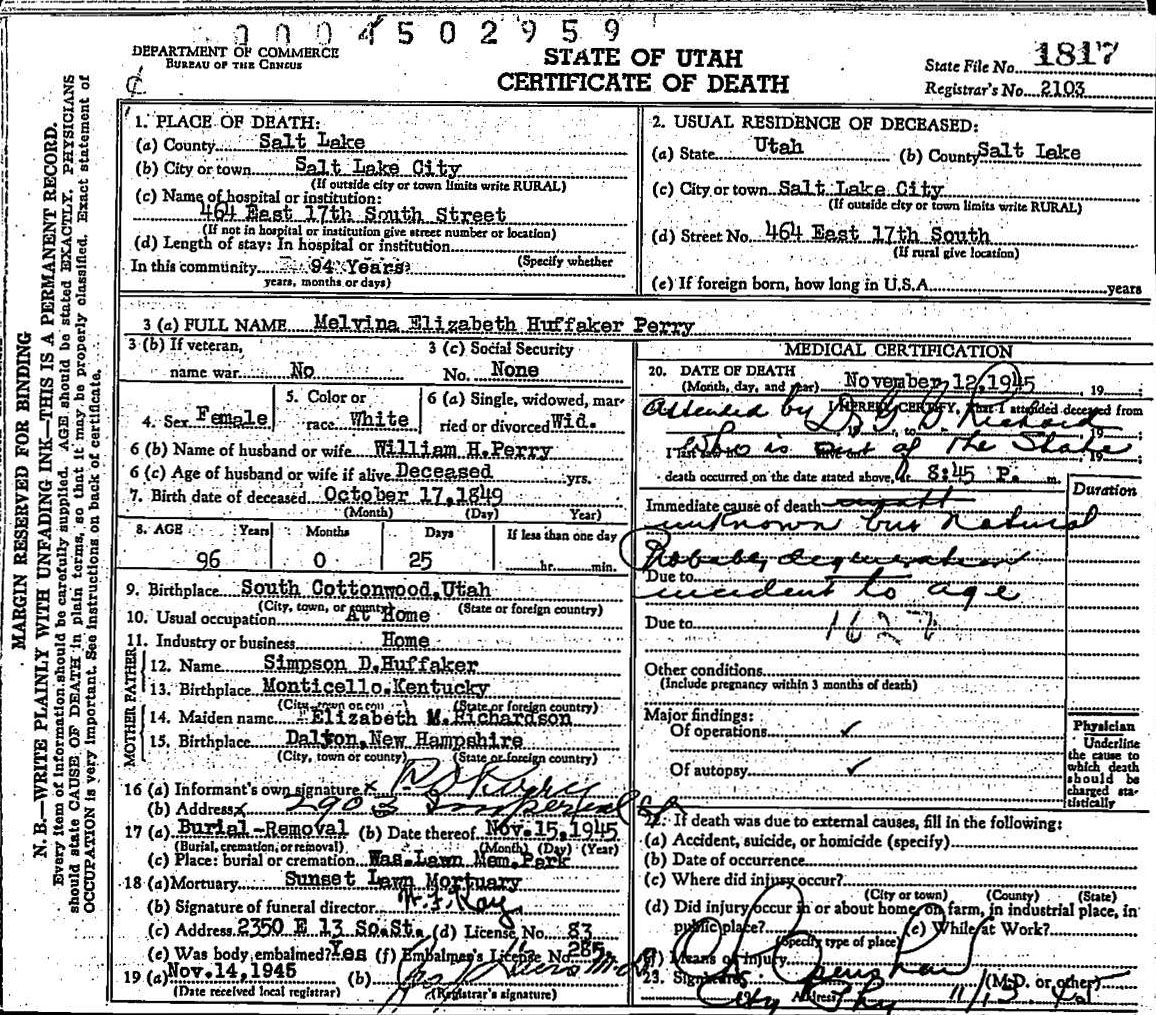 0004502959
DEPARTMENT OF COMMERCE
BUREAU OF THE CENSUS
STATE OF UTAH
CERTIFICATE OF DEATH
State File No. 1817
Registrar's No. 2103
MARGIN RESERVED FOR BINDING
N. B.—WRITE PLAINLY WITH UNFADING INK—THIS IS A PERMANENT RECORD.
Every item of information should be carefully supplied. AGE should be stated EXACTLY. PHYSICIANS
should state CAUSE OF DEATH in plain terms, so that it may be properly classified. Exact statement of
OCCUPATION is very important. See instructions on back of certificate.
1. PLACE OF DEATH:
(a) County Salt Lake
(b) City or town Salt Lake City
(If outside city or town limits write RURAL)
(c) Name of hospital or institution:
464 East 17th South Street
(If not in hospital or institution give street number or location)
(d) Length of stay: In hospital or institution
(Specify whether
In this community 94 Years
years, months or days)
2. USUAL RESIDENCE OF DECEASED:
(a) State Utah (b) County Salt Lake
(c) City or town Salt Lake City
(If outside city or town limits write RURAL)
(d) Street No. 464 East 17th South
(If rural give location)
(e) If foreign born, how long in U.S.A. years
3 (a) FULL NAME Melvina Elizabeth Huffaker Perry
3 (b) If veteran, 3 (c) Social Security
name war No No. None
4. Sex Female 5. Color or race White 6 (a) Single, widowed, married or divorced Wid.
6 (b) Name of husband or wife William H. Perry
6 (c) Age of husband or wife if alive Deceased yrs.
7. Birth date of deceased October 17, 1849
(Month) (Day) Year)
8. AGE Years Months Days If less than one day
96 0 25 hr. min.
9. Birthplace South Cottonwood, Utah
(City, town, or county) (State or foreign country)
10. Usual occupation At Home
11. Industry or business Home
FATHER
12. Name Simpson D. Huffaker
13. Birthplace Monticello, Kentucky
(City town or cou (State or foreign country)
MOTHER
14. Maiden name Elizabeth M. Richardson
15. Birthplace Dalton, New Hampshire
(City, town or county) (State or foreign country)
16 (a) Informant's own signature x
(b) Address x 2903 Imperial
17 (a) Burial-Removal (b) Date thereof Nov. 15, 1945
(Burial, cremation, or removal) (Month) (Day) (Year)
(c) Place: burial or cremation Was. Lawn Mem. Park
18 (a) Mortuary Sunset Lawn Mortuary
(b) Signature of funeral director
(c) Address 2350 E 13 So. St. (d) License No. 83
(e) Was body embalmed? Yes (f) Embalmer's License No. 285
19 (a) Nov. 14, 1945 (b)
(Date received local registrar) (Registrar's signature)
MEDICAL CERTIFICATION
20. DATE OF DEATH
(Month, day, and year) November 12, 1945 19 ;
I HEREBY CERTIFY, that I attended deceased from
Attended by Richard
who is out of the State
death occurred on the date stated above, at 8:45 P. m.
Duration
Immediate cause of death
unknown but natural
Probably degeneration
Due to
incident to age
Due to
162
Other conditions
(Include pregnancy within 3 months of death)
Major findings:
Of operations ✓
Of autopsy ✓
Physician
Underline
the cause to
which death
should be
charged sta-
tistically
22. If death was due to external causes, fill in the following:
(a) Accident, suicide, or homicide (specify)
(b) Date of occurrence
(c) Where did injury occur?
(City or town) (County) (State)
(d) Did injury occur in or about home, on farm, in industrial place, in
public place? (e) While at Work?
(Specify type of place)
(f) Means of injury
23. Signature (M.D. or other)
City Phy Address 11/13 45